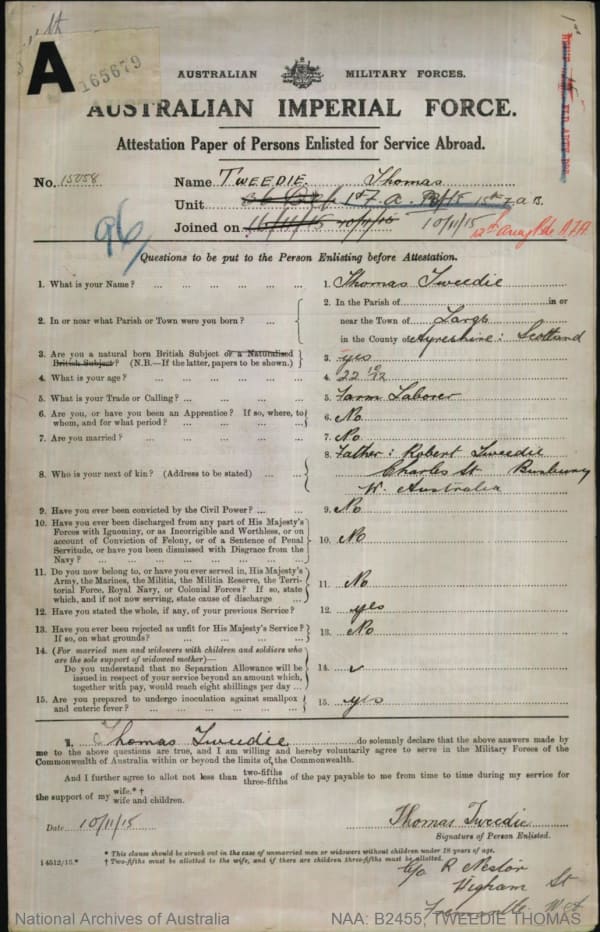 A
165679
AUSTRALIAN MILITARY FORCES.
AUSTRALIAN IMPERIAL FORCE.
Attestation Paper of Persons Enlisted for Service Abroad.
No. 15058 Name TWEEDIE. Thomas
Unit 1st F.A. 15th F A B.
Joined on 16/11/15 10/11/15 10/11/15
96
Questions to be put to the Person Enlisting before Attestation.
1. What is your Name? ... 1. Thomas Tweedie
2. In or near what Parish or Town were you born? ... 2. In the Parish of in or
near the Town of Largs
in the County of Ayreshire: Scotland
3. Are you a natural born British Subject or a Naturalised
British Subject? (N.B.—If the latter, papers to be shown.) 3. yes
4. What is your age? ... 4. 22 10/12
5. What is your Trade or Calling? ... 5. Farm Laborer
6. Are you, or have you been an Apprentice? If so, where, to
whom, and for what period? ... 6. No
7. Are you married? ... 7. No
8. Who is your next of kin? (Address to be stated) ... 8. Father: Robert Tweedie
Charles St. Bunbury
W. Australia
9. Have you ever been convicted by the Civil Power? ... 9. No
10. Have you ever been discharged from any part of His Majesty's
Forces with Ignominy, or as Incorrigible and Worthless, or on
account of Conviction of Felony, or of a Sentence of Penal
Servitude, or have you been dismissed with Disgrace from the
Navy? ... 10. No
11. Do you now belong to, or have you ever served in, His Majesty's
Army, the Marines, the Militia, the Militia Reserve, the Terri-
torial Force, Royal Navy, or Colonial Forces? If so, state
which, and if not now serving, state cause of discharge ... 11. No
12. Have you stated the whole, if any, of your previous Service? 12. yes
13. Have you ever been rejected as unfit for His Majesty's Service?
If so, on what grounds? ... 13. No
14. (For married men and widowers with children and soldiers who
are the sole support of widowed mother)—
Do you understand that no Separation Allowance will be
issued in respect of your service beyond an amount which,
together with pay, would reach eight shillings per day ... 14.
15. Are you prepared to undergo inoculation against smallpox
and enteric fever? ... 15. yes
I, Thomas Tweedie do solemnly declare that the above answers made by
me to the above questions are true, and I am willing and hereby voluntarily agree to serve in the Military Forces of the
Commonwealth of Australia within or beyond the limits of the Commonwealth.
And I further agree to allot not less than two-fifths three-fifths of the pay payable to me from time to time during my service for
the support of my wife.*† wife and children.
Date 10/11/15 Thomas Tweedie
Signature of Person Enlisted.
* This clause should be struck out in the case of unmarried men or widowers without children under 18 years of age.
14512/15.* † Two-fifths must be allotted to the wife, and if there are children three-fifths must be allotted.
C/o R Nestor
Wigham St
National Archives of Australia NAA: B2455, TWEEDIE THOMAS